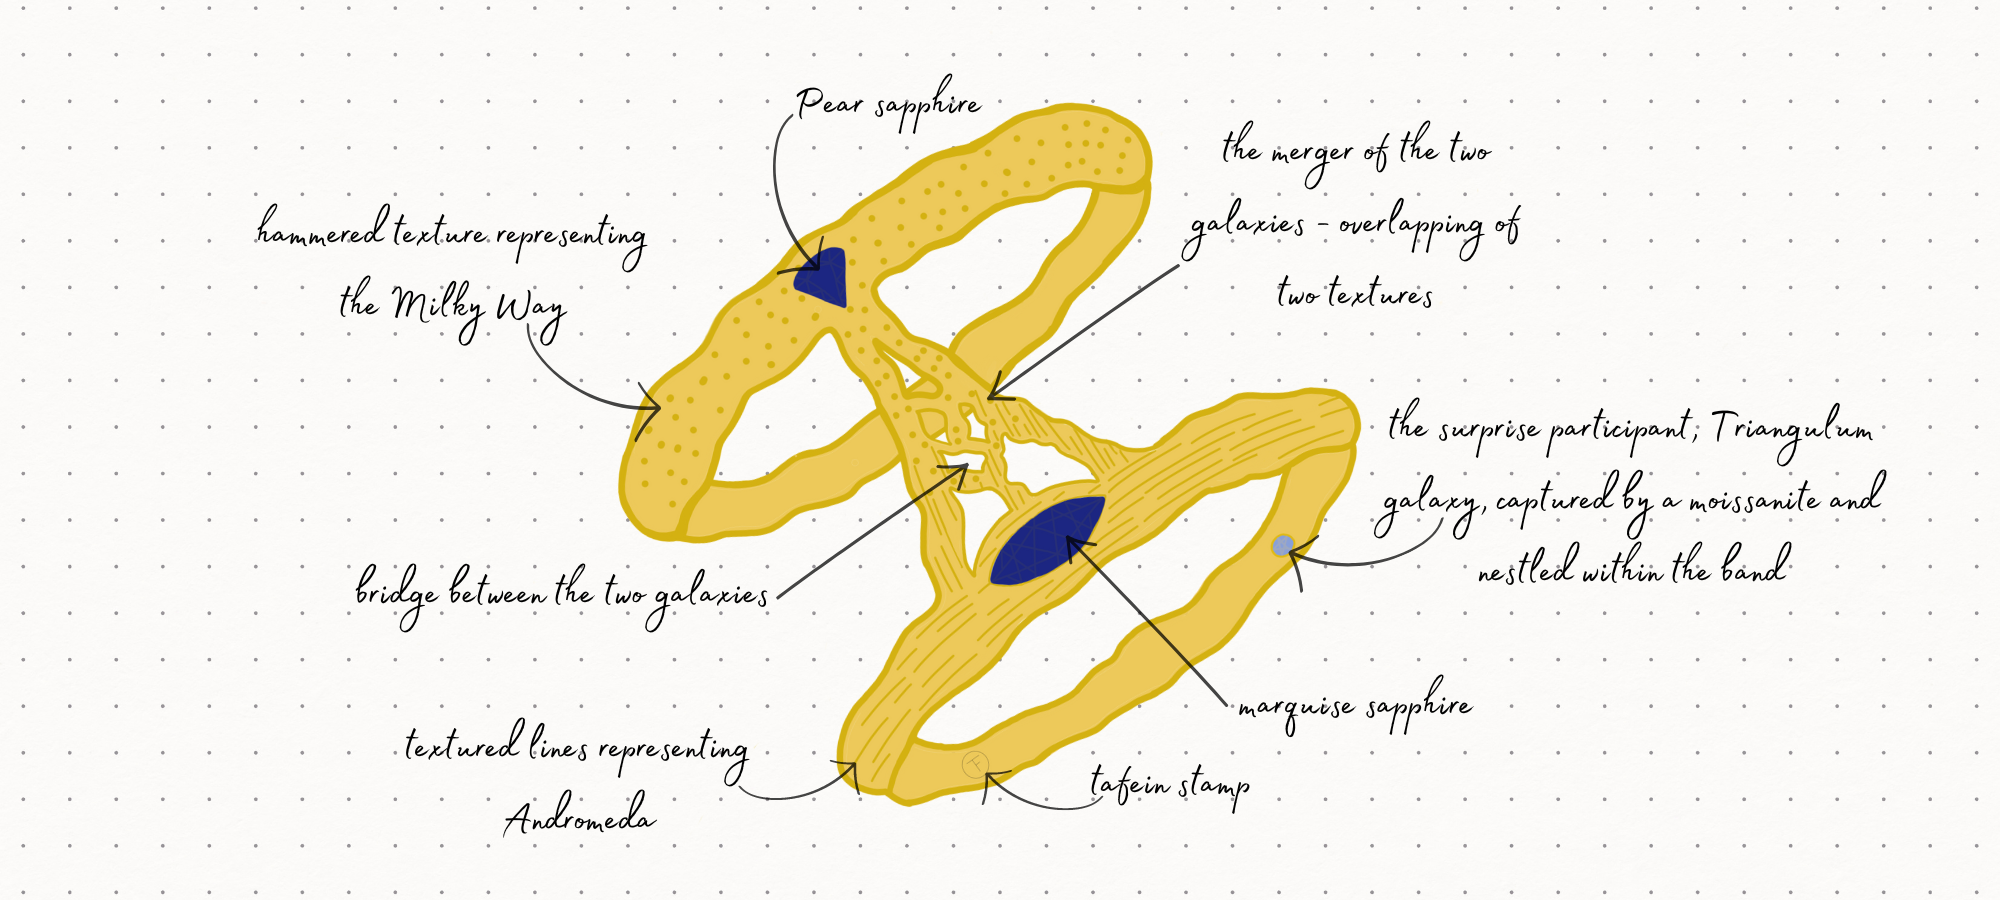 Pear sapphire
the merger of the two
galaxies - overlapping of
two textures
hammered texture representing
the Milky Way
the surprise participant, Triangulum
galaxy, captured by a moissanite and
nestled within the band
bridge between the two galaxies
marquise sapphire
textured lines representing
Andromeda
tafein stamp